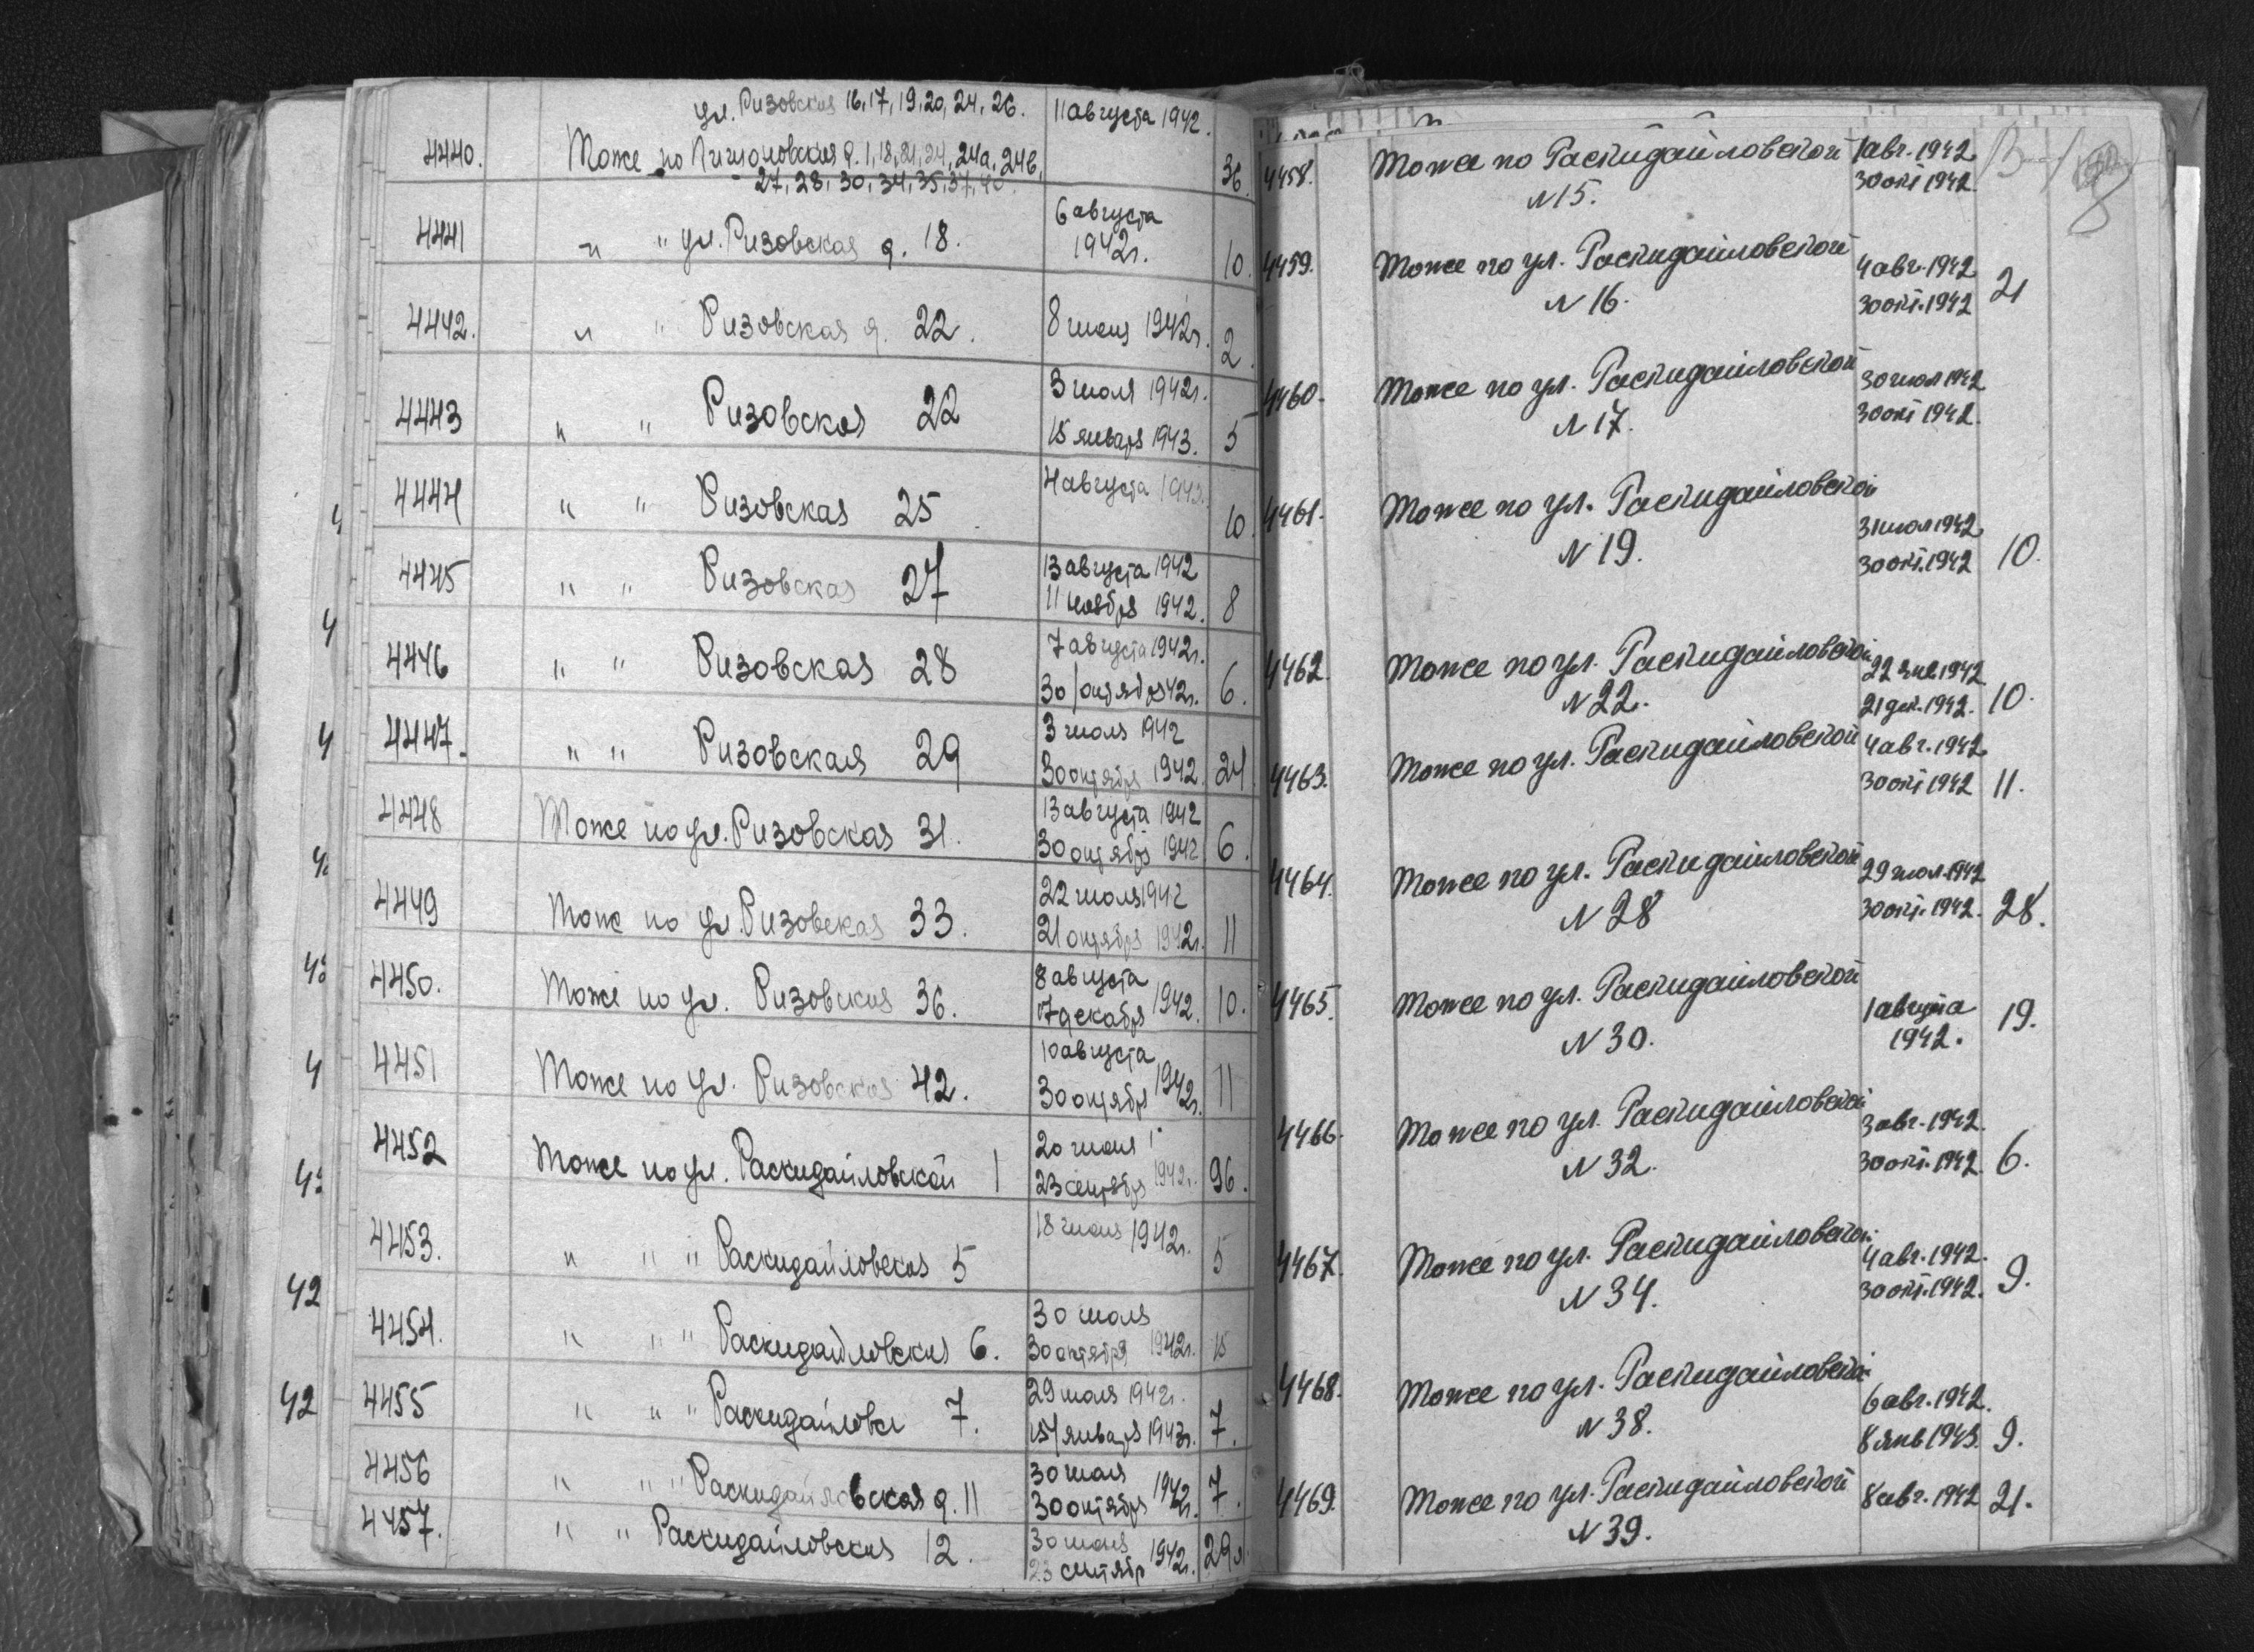 ул. Ризовская 16, 17, 19, 20, 24, 26. 11 августа 1942.
4440. Тоже по д. 1, 18, 21, 24, 24а, 24б, 36.
27, 28, 30, 34, 35, 37, 40.
4441 " " ул. Ризовская д. 18. 6 августа
1942г. 10.
4442. " " Ризовская д. 22. 8 1942г. 2.
4443 " " Ризовская 22 3 июля 1942г.
15 января 1943. 5
4444 " " Ризовская 25 4 августа 10.
4445 " " Ризовская 27 13 августа 1942
11 ноября 1942. 8
4446 " " Ризовская 28 7 августа 1942г.
30 октября 42г. 6.
4447. " " Ризовская 29 3 июля 1942
30 октября 1942. 24
4448 Тоже по ул. Ризовская 31. 13 августа 1942
30 октября 1942 6.
4449 Тоже по ул. Ризовская 33. 22 июля 1942
21 октября 1942г. 11
4450. Тоже по ул. Ризовская 36. 8 августа
17 декабря 1942. 10.
4451 Тоже по ул. Ризовская 42. 10 августа
30 октября 1942г. 11
4452 Тоже по ул. Раскидайловской 1 20
23 сентября 1942г. 96.
4453. " " " Раскидайловская 5 18 1942г. 5
4454. " " " Раскидайловская 6. 30 июля
30 октября 1942г. 15
4455 " " " Раскидайловск 7. 29 июля 1942г.
15/января 1943г. 7.
4456 " " " Раскидайловская д. 11 30 июля
30 октября 1942г. 7.
4457. " " Раскидайловская 12. 30
23 сентябр 1942г. 29л.
4458. Тоже по Раскидайловской 1 авг. 1942
N 15. 30 окт 1942. 8
4459. Тоже по ул. Раскидайловской 4 авг. 1942
N 16. 30 окт. 1942 21
4460. Тоже по ул. Раскидайловской 30 июл 1942
N 17. 30 окт 1942.
4461. Тоже по ул. Раскидайловской 31 июл 1942
N 19. 30 окт. 1942 10.
4462. Тоже по ул. Раскидайловской 22 1942
N 22. 21 дек. 1942. 10.
4463. Тоже по ул. Раскидайловской 4 авг. 1942
30 окт 1942 11.
4464. Тоже по ул. Раскидайловской 29 июл. 1942
N 28 30 окт. 1942. 28.
4465. Тоже по ул. Раскидайловской 1 августа
N 30. 1942. 19.
4466. Тоже по ул. Раскидайловской 3 авг. 1942.
N 32. 30 окт. 1942. 6.
4467. Тоже по ул. Раскидайловской 4 авг. 1942.
N 34. 30 окт. 1942. 9.
4468. Тоже по ул. Раскидайловской 6 авг. 1942.
N 38. 8 янв 1943. 9.
4469. Тоже по ул. Раскидайловской 8 авг. 1942 21.
N 39.